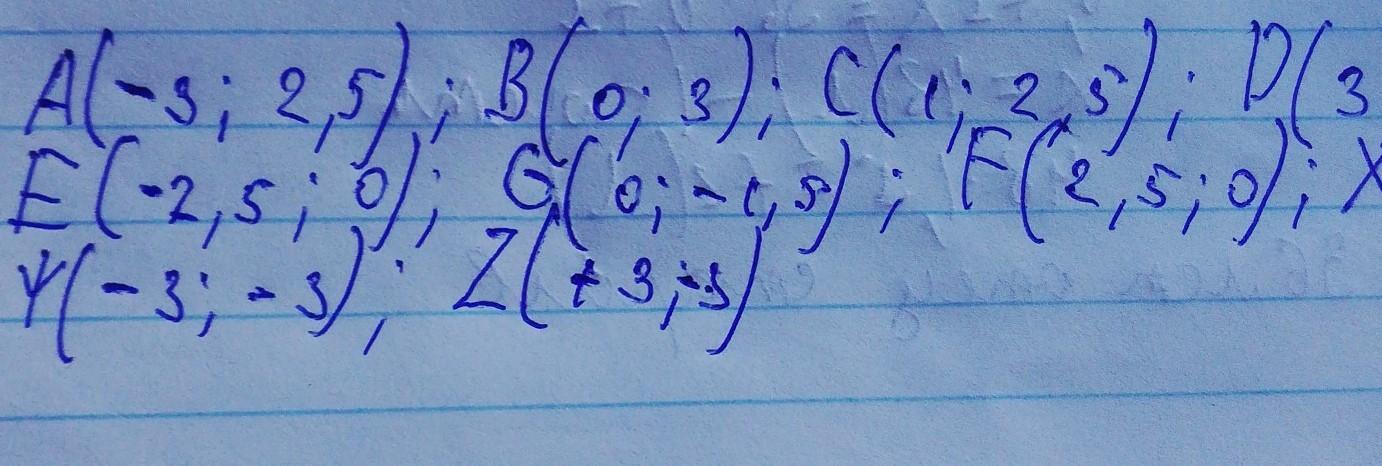 A(-3; 2,5); B(0; 3); C(1; 2,5); D(3
E(-2,5; 0); G(0; -1,5); F(2,5; 0); X
Y(-3; -3); Z(+3; -3)